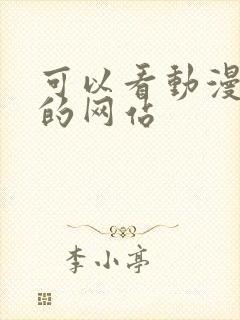 可以看動漫
的网站
李小亭